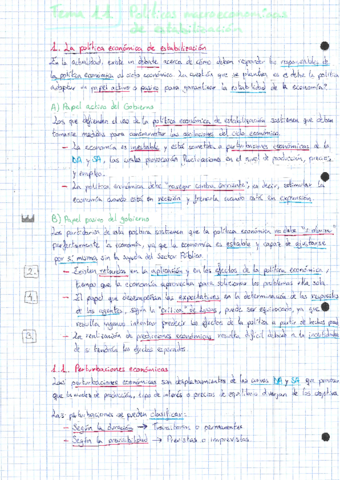 Tema 11. Políticas macroeconómicas
de estabilización
1. La política económica de estabilización
En la actualidad, existe un debate acerca de cómo deben responder los responsables de
la política económica al ciclo económico. La cuestión que se plantea es si debe la política
adoptar un papel activo o pasivo para garantizar la estabilidad de la economía?
A) Papel activo del Gobierno
Los que defienden el uso de la política económica de estabilización sostienen que deben
tomarse medidas para contrarrestar las oscilaciones del ciclo económico.
— La economía es inestable y está sometida a perturbaciones económicas de la
DA y SA, las cuales provocan fluctuaciones en el nivel de producción, precios,
y empleo.
— La política económica debe "navegar contra corriente", es decir, estimular la
economía cuando está en recesión y frenarla cuando está en expansión.
B) Papel pasivo del gobierno
Los partidarios de esta postura sostienen que la política económica no debe
perfectamente la economía, ya que la economía es estable y capaz de ajustarse
por sí misma sin la ayuda del Sector Público.
2. — Existen retardos en la aplicación y en los efectos de la política económica,
tiempo que la economía aprovecha para solucionar los problemas ella sola.
1. — El papel que desempeñan las expectativas en la determinación de las respuestas
de los agentes, según la "crítica" de Lucas, puede ser equivocación, ya que
resulta ingenuo intentar predecir los efectos de la política a partir de hechos pasados
3. — La realización de predicciones económicas resulta difícil debido a la
de si tendrán los efectos esperados.
1.1. Perturbaciones económicas
Las perturbaciones económicas son desplazamientos de las curvas DA y SA que provocan
que los niveles de producción, tipo de interés o precios de equilibrio diverjan de los objetivos
Las perturbaciones se pueden clasificar:
— Según la duración → Transitorias o permanentes
— Según la previsibilidad → Previstas o imprevistas